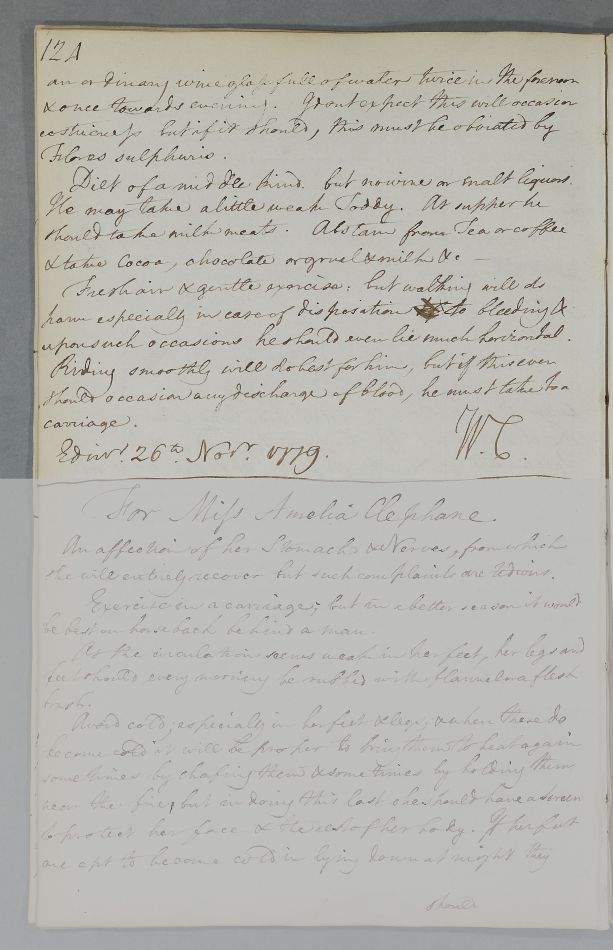 124
an ordinary wineglassfull of water twice in the forenoon
& once towards evening. I dont expect this will occasion
costiveness but if it should, this must be obviated by
Flores sulphuris.
Diet of a middle kind. but no wine or malt liquors.
He may take a little weak Toddy. At supper he
should take milk meats. Abstain from Tea or coffee
& take Cocoa, chocolate or gruel & milk &c —
Fresh air & gentle exercise; but walking will do
harm especially in case of disposition to bleeding &
upon such occasions he should even lie much horizontal.
Riding smoothly will do best for him, but if this even
should occasion any discharge of blood, he must take to a
carriage.
Edinr. 26th. Novr. 1779. W.C.
For Miss Amelia Clephane.
An affection of her Stomach & Nerves, from which
she will entirely recover but such complaints are tedious.
Exercise in a carriage; but in a better season it would
be best on horseback behind a man.
As the circulation seems weak in her feet, her legs and
feet should every morning be rubbed with flannel or a flesh
brush.
Avoid cold; especially in her feet & legs; & when these do
become cold it will be proper to bring them to heat again
sometimes by chafing them & sometimes by holding them
near the fire, but in doing this last she should have a screen
to protect her face & the rest of her body. If her feet
are apt to become cold in lying down at night they
should